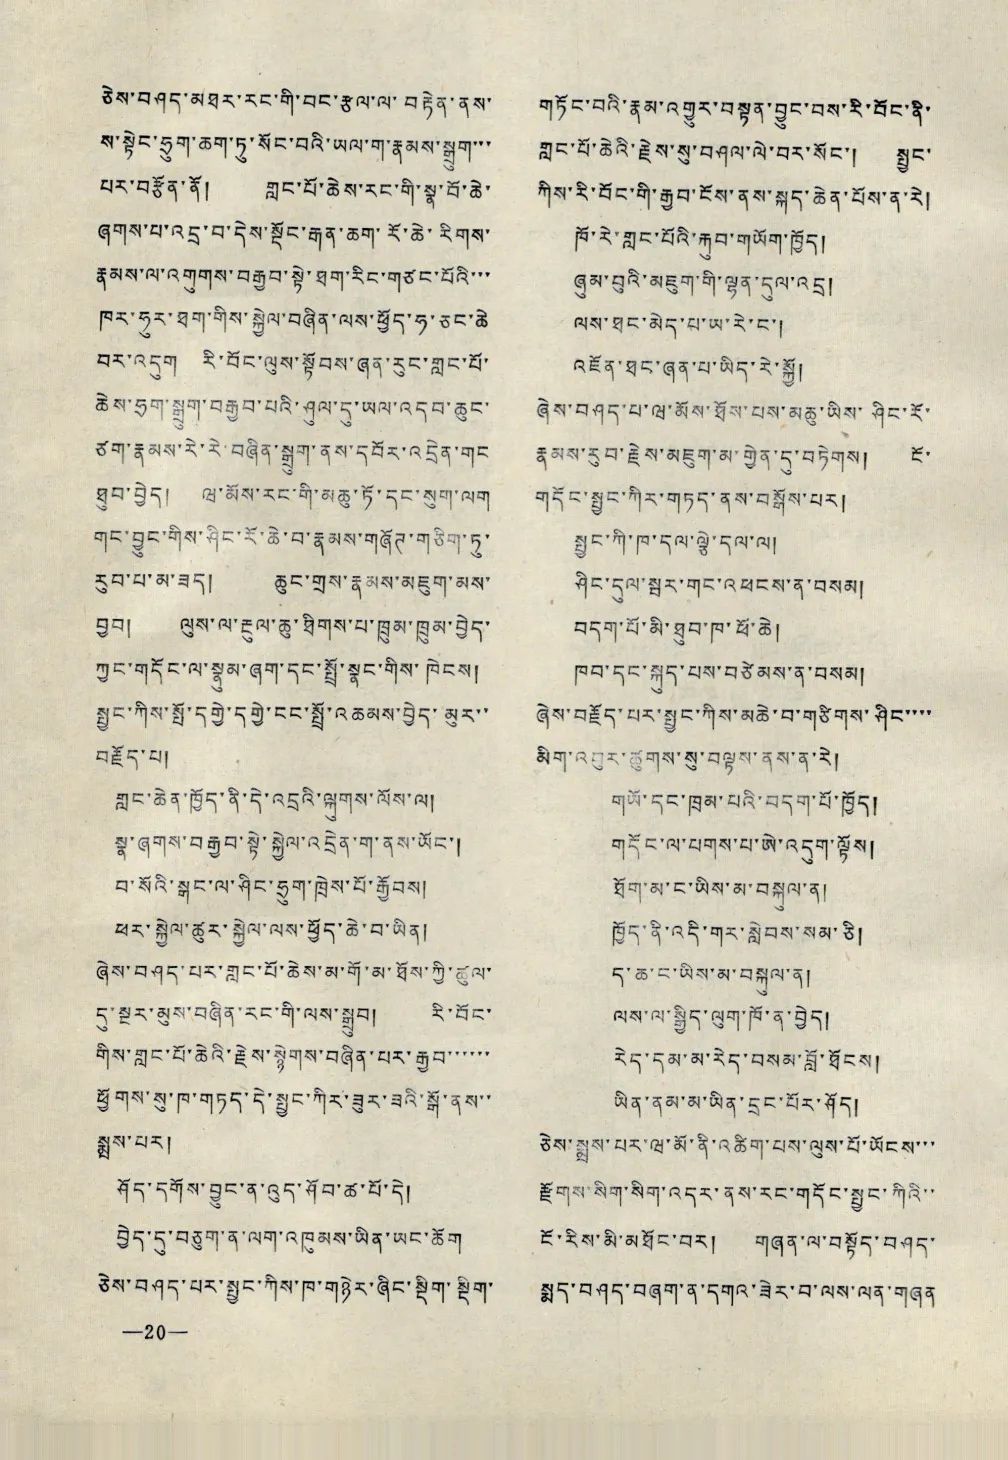 ཅེས་བཤད་མཐར་རང་གི་བང་རྩལ་ལ་ བརྟེན་ནས་
ས་སྟེང་ཧྲུག་ཆག་ཏུ་སོང་བའི་ཡལ་ག་རྣམས་སྒྲུག་་་
པར་བརྩོན་ནོ། གླང་པོ་ཆེས་རང་གི་སྣ་པོ་ཆེ་
ཞགས་པ་འདྲ་བ་དེས་སྡོང་རྒན་ཆག་ རོ་ཆེ་ རིགས་
རྣམས་ལ་འཀུགས་བརྒྱབ་སྟེ་ཐག་རིང་གཙང་པོའི་་་
ཁར་ཧུར་ཐག་གིས་སྐྱེལ་བཞིན་ལས་ཕྱོད་ཧ་ཅང་ཆེ
བར་འདུག རི་བོང་ལུས་སྟོབས་ཞན་རུང་གླང་པོ་
ཆེས་ཧྲག་སྒྲུག་བརྒྱབ་པའི་ཤུལ་དུ་ཡལ་འདབ་ཆུང་
ཙག་རྣམས་རེ་རེ་བཞིན་སྒྲུག་ནས་དབོར་འདྲེན་གང
ཐུབ་བྱེད། ལྷ་མོས་རང་གི་མཆུ་ཏོ་དང་སུག་ལག
གང་བྱུང་གིས་ཤིང་རོ་ཆེ་བ་རྣམས་གཞོཊ་གཅིག་ཏུ་
རུབ་པ་མ་ཟད། ཆུང་གྲས་རྣམས་མཇུག་མས་
བྱབ། ལུས་ལ་རྔུལ་ཆུ་ཐིགས་པ་ཁྲུམ་ཁྲུམ་བྱེད་
ཀྱང་གདོང་ལ་སྣུམ་ཞག་དང་སྤྲོ་སྣང་གིས་ཁེངས།
སྤྱང་ཀིས་སྤྲོ་དགྱེ་དགྱེ་ངང་སྤྲོ་འཆམས་བྱེད་ མུར་་
བརྗོད་པ།
གླང་ཆེན་ཁྱོད་ནི་དེ་འདྲའི་ལྐུགས་ལོས་ལ།
སྣ་ཞགས་བརྒྱབ་སྟེ་སྐྱེལ་འདྲེན་ག་ནས་ཡོང་།
བ་སོའི་སྒང་ལ་ཤིང་ཧྲུག་ཁྲེས་པོ་རྒྱོབས།
ཕར་སྐྱེལ་ཚུར་སྐྱེལ་ལས་ཕྱོད་ཆེ་བ་ཡིན།
ཞེས་བཤད་པར་གླང་པོ་ཆེས་མ་གོ་མ་ཐོས་ཀྱི་ཚུལ་
དུ་སྔར་མུས་བཞིན་རང་གི་ལས་སྒྲུབ། རི་བོང་
གིས་གླང་པོ་ཆེའི་རྗེས་སྙེགས་བཞིན་པར་རྒྱབ་་་་་་
ཕྱོགས་སུ་ཁ་གཏད་དེ་སྤྱང་ཀིར་ཟུར་ཟའི་སྒོ་ནས་་
སྨྲས་པར།
ཤོད་དགོས་བྱུང་ན་འུད་ཤོབ་ཚ་པོ་དེ།
བྱེད་དུ་བཅུག་ན་ལག་འཁུམས་ཡིན་ཡང་ཆོག
ཅེས་བཤད་པར་སྤྱང་ཀིས་ཁ་གཉེར་ཞིང་སྡིག་ སྡིག་
གཏོང་བའི་རྣམ་འགྱུར་བསྟན་བྱུང་བས་རི་བོང་ནི་
གླང་པོ་ཆེའི་རྗེས་སུ་བཤལ་ལེ་བར་སོང་། སྤྱང་
ཀིས་རི་བོང་གི་རྒྱབ་ངོས་ནས་སྐད་ཆེན་པོས་ན་རེ།
ཁོ་རེ་གླང་པོའི་རྐུབ་གཡོག་ཁྱོད།
ཞུམ་བུའི་མཇུག་གི་ལྷན་དུལ་འདྲ།
ལས་ཐང་མེད་པ་ཡ་རེ་ང་།
འཇོན་ཐང་ཞན་པ་ཡིད་རེ་སྐྱོ།
ཞེས་བཤད་པ་ལྷ་མོས་ཐོས་པས་མཆུ་ཡིས་ ཤིང་རོ་
རྣམས་རུབ་རྗེས་མཇུག་མ་གྱེན་དུ་བཏེགས། ངོ་
གདོང་སྤྱང་ཀིར་གཏད་ནས་བསྒོས་པར།
སྤྱང་ཀི་ཁ་དལ་ལྕེ་དལ་ལ།
ཤིང་དུལ་སྦར་གང་འཕངས་ན་བསམ།
བདག་པོ་མི་ཐུབ་ཁ་ཕོ་ཆེ།
ཁབ་དང་སྐུད་པས་བཙེམས་ན་བསམ།
ཞེས་བརྗོད་པར་སྤྱང་ཀིས་མཆེ་བ་གཙིགས་ཤིང་་་་
མིག་འབུར་ཚུགས་སུ་བལྟས་ནས་ན་རེ།
གཡོ་དང་ཁྲམ་པའི་བདག་པོ་ཁྱོད།
གདོང་ལ་པགས་པ་ཨེ་འདུག་ལྟོས།
ཐོག་མ་ང་ཡིས་མ་བསྐུལ་ན།
ཁྱོད་ནི་འདི་གར་སླེབས་སམ་ཅི།
ད་ཆ་ང་ཡིས་མ་བསྐུལ་ན།
ལས་ལ་སྒྱིད་ལུག་ཁོ་ན་བྱེད།
རེད་དམ་མ་རེད་བསམ་བློ་ཐོངས།
ཡིན་ནམ་མ་ཡིན་དྲང་པོར་ཤོད།
ཅེས་སྨྲས་པར་ལྷ་མོ་ནི་འཚིག་པས་ལུས་པོ་ཡོངས་་་
རྫོགས་སིག་སིག་འདར་ནས་རང་གདོང་སྤྱང་ཀིའི་་
ངོ་རིས་མི་མཐོང་བར། གཞན་ལ་བསྟོད་བཤད་
སྨད་བཤད་བཞག་ན་དགའ་ཟེར་བ་ལས་ལན་གཞན
—20—